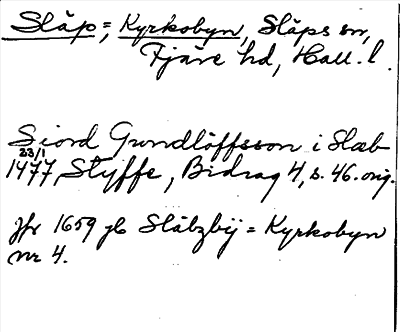 Släp =, Kyrkobyn, Släps sn,
Fjäre hd, Hall. l.
Siord Gundlöffsson i Slæb
23/1
1477, Styffe, Bidrag 4, s. 46. orig.
jfr 1659 jb Släbzbÿ = Kyrkobyn
nr 4.